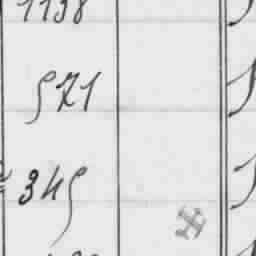 1138
571
345